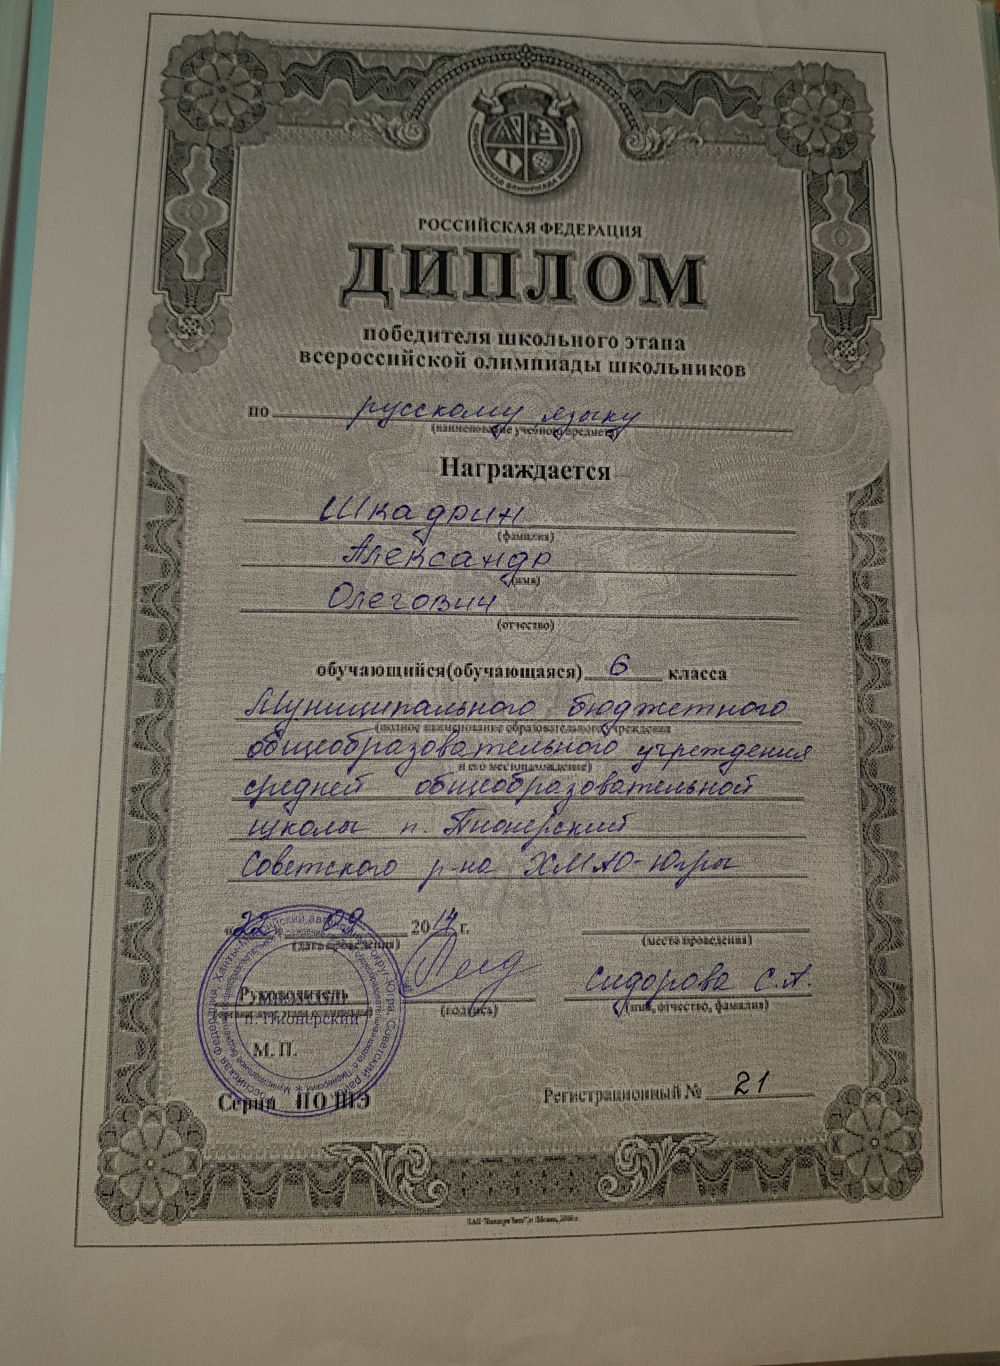 РОССИЙСКАЯ ФЕДЕРАЦИЯ
ДИПЛОМ
победителя школьного этапа
всероссийской олимпиады школьников
по русскому языку
(наименование учебного предмета)
Награждается
Шкадрин
(фамилия)
Александр
(имя)
Олегович
(отчество)
обучающийся(обучающаяся) 6 класса
Муниципального бюджетного
(полное наименование образовательного учреждения
общеобразовательного учреждения
и его местонахождение)
средней общеобразовательной
школы п. Пионерский
Советского р-на ХМАО-Югры
«22» 09 2014 г.
(дата проведения) (место проведения)
Сидорова С.А.
Руководитель
(подпись) (имя, отчество, фамилия)
п. Пионерский
М. П.
Серия ПО ШЭ Регистрационный № 21